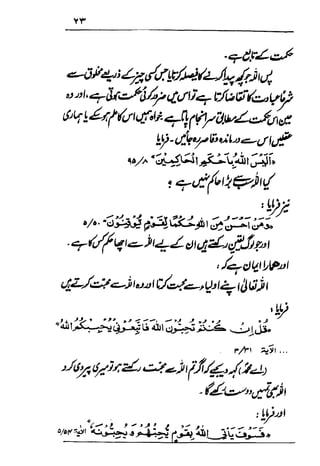 ۲۳
حکمت کے تابع ہے۔
پس اللہ جو کچھ پیدا کرنے کا فیصلہ کرتا یا جس کسی چیز کے ذریعے مخلوق سے
شرعاً عبادت کا تقاضا کرتا ہے تو اس میں ضرور کوئی حکمت ہوتی ہے، اور وہ
عین اس حکمت کے مطابق سرانجام پاتا ہے۔ خواہ ہمیں اس کا علم ہو سکے یا ہماری
عقلیں اس سے درماندہ و قاصر رہ جائیں۔ فرمایا
«أَلَيْسَ اللهُ بِأَحْكَمِ الْحَاكِمِينَ» ۹۵/۸
کیا اللہ سب سے بڑا حاکم نہیں ہے؟
نیز فرمایا:
«وَمَنْ أَحْسَنُ مِنَ اللهِ حُكْمًا لِقَوْمٍ يُوقِنُونَ» ۵/۵۰
اور جو لوگ یقین رکھتے ہیں ان کے لیے اللہ سے اچھا حکم کس کا ہے۔
اور ہمارا ایمان ہے کہ:
اللہ تعالیٰ اپنے اولیاء سے محبت کرتا اور وہ اللہ سے محبت کرتے ہیں
فرمایا:
«قُلْ إِنْ كُنْتُمْ تُحِبُّونَ اللهَ فَاتَّبِعُونِي يُحْبِبْكُمُ اللهُ»
... الآیة ۳/۳۱
(اے محمدؐ) کہہ دیجئے کہ اگر تم اللہ سے محبت رکھتے ہو تو میری پیروی کرو
اللہ بھی تمہیں دوست رکھے گا۔
اور فرمایا:
«فَسَوْفَ يَأْتِي اللهُ بِقَوْمٍ يُحِبُّهُمْ وَيُحِبُّونَهُ» الآیة ۵/۵۴